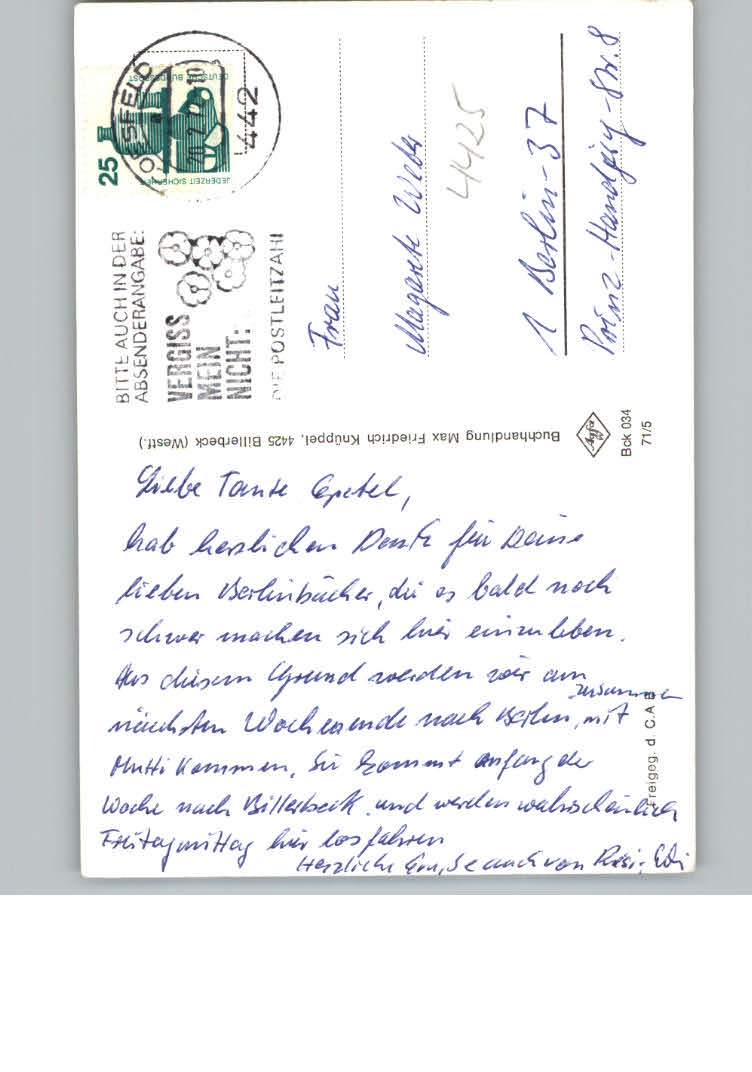 25
DEUTSCHE BUNDESPOST
JEDERZEIT SICHERHEIT
COESFELD
442
BITTE AUCH IN DER
ABSENDERANGABE:
VERGISS
MEIN
NICHT:
DIE POSTLEITZAHL
Frau
Magarete Weber
4425
1 Berlin-37
Prinz-Handjery-Str. 8
Buchhandlung Max Friedrich Knüppel, 4425 Billerbeck (Westf.)
Agfa
Bck 034
71/5
Freigeg. d. C. A. B
Liebe Tante Gretel,
hab herzlichen Dank für Deine
lieben Berlinbücher, die es bald noch
schwer machen sich hier einzuleben.
Aus diesem Grund werden wir am
zusammen
nächsten Wochenende nach Berlin, mit
Mutti kommen. Sie kommt anfang der
Woche nach Billerbeck und werden wahrscheinlich
Freitagmittag hier losfahren
Herzliche Grüsse auch von Resi, Edi